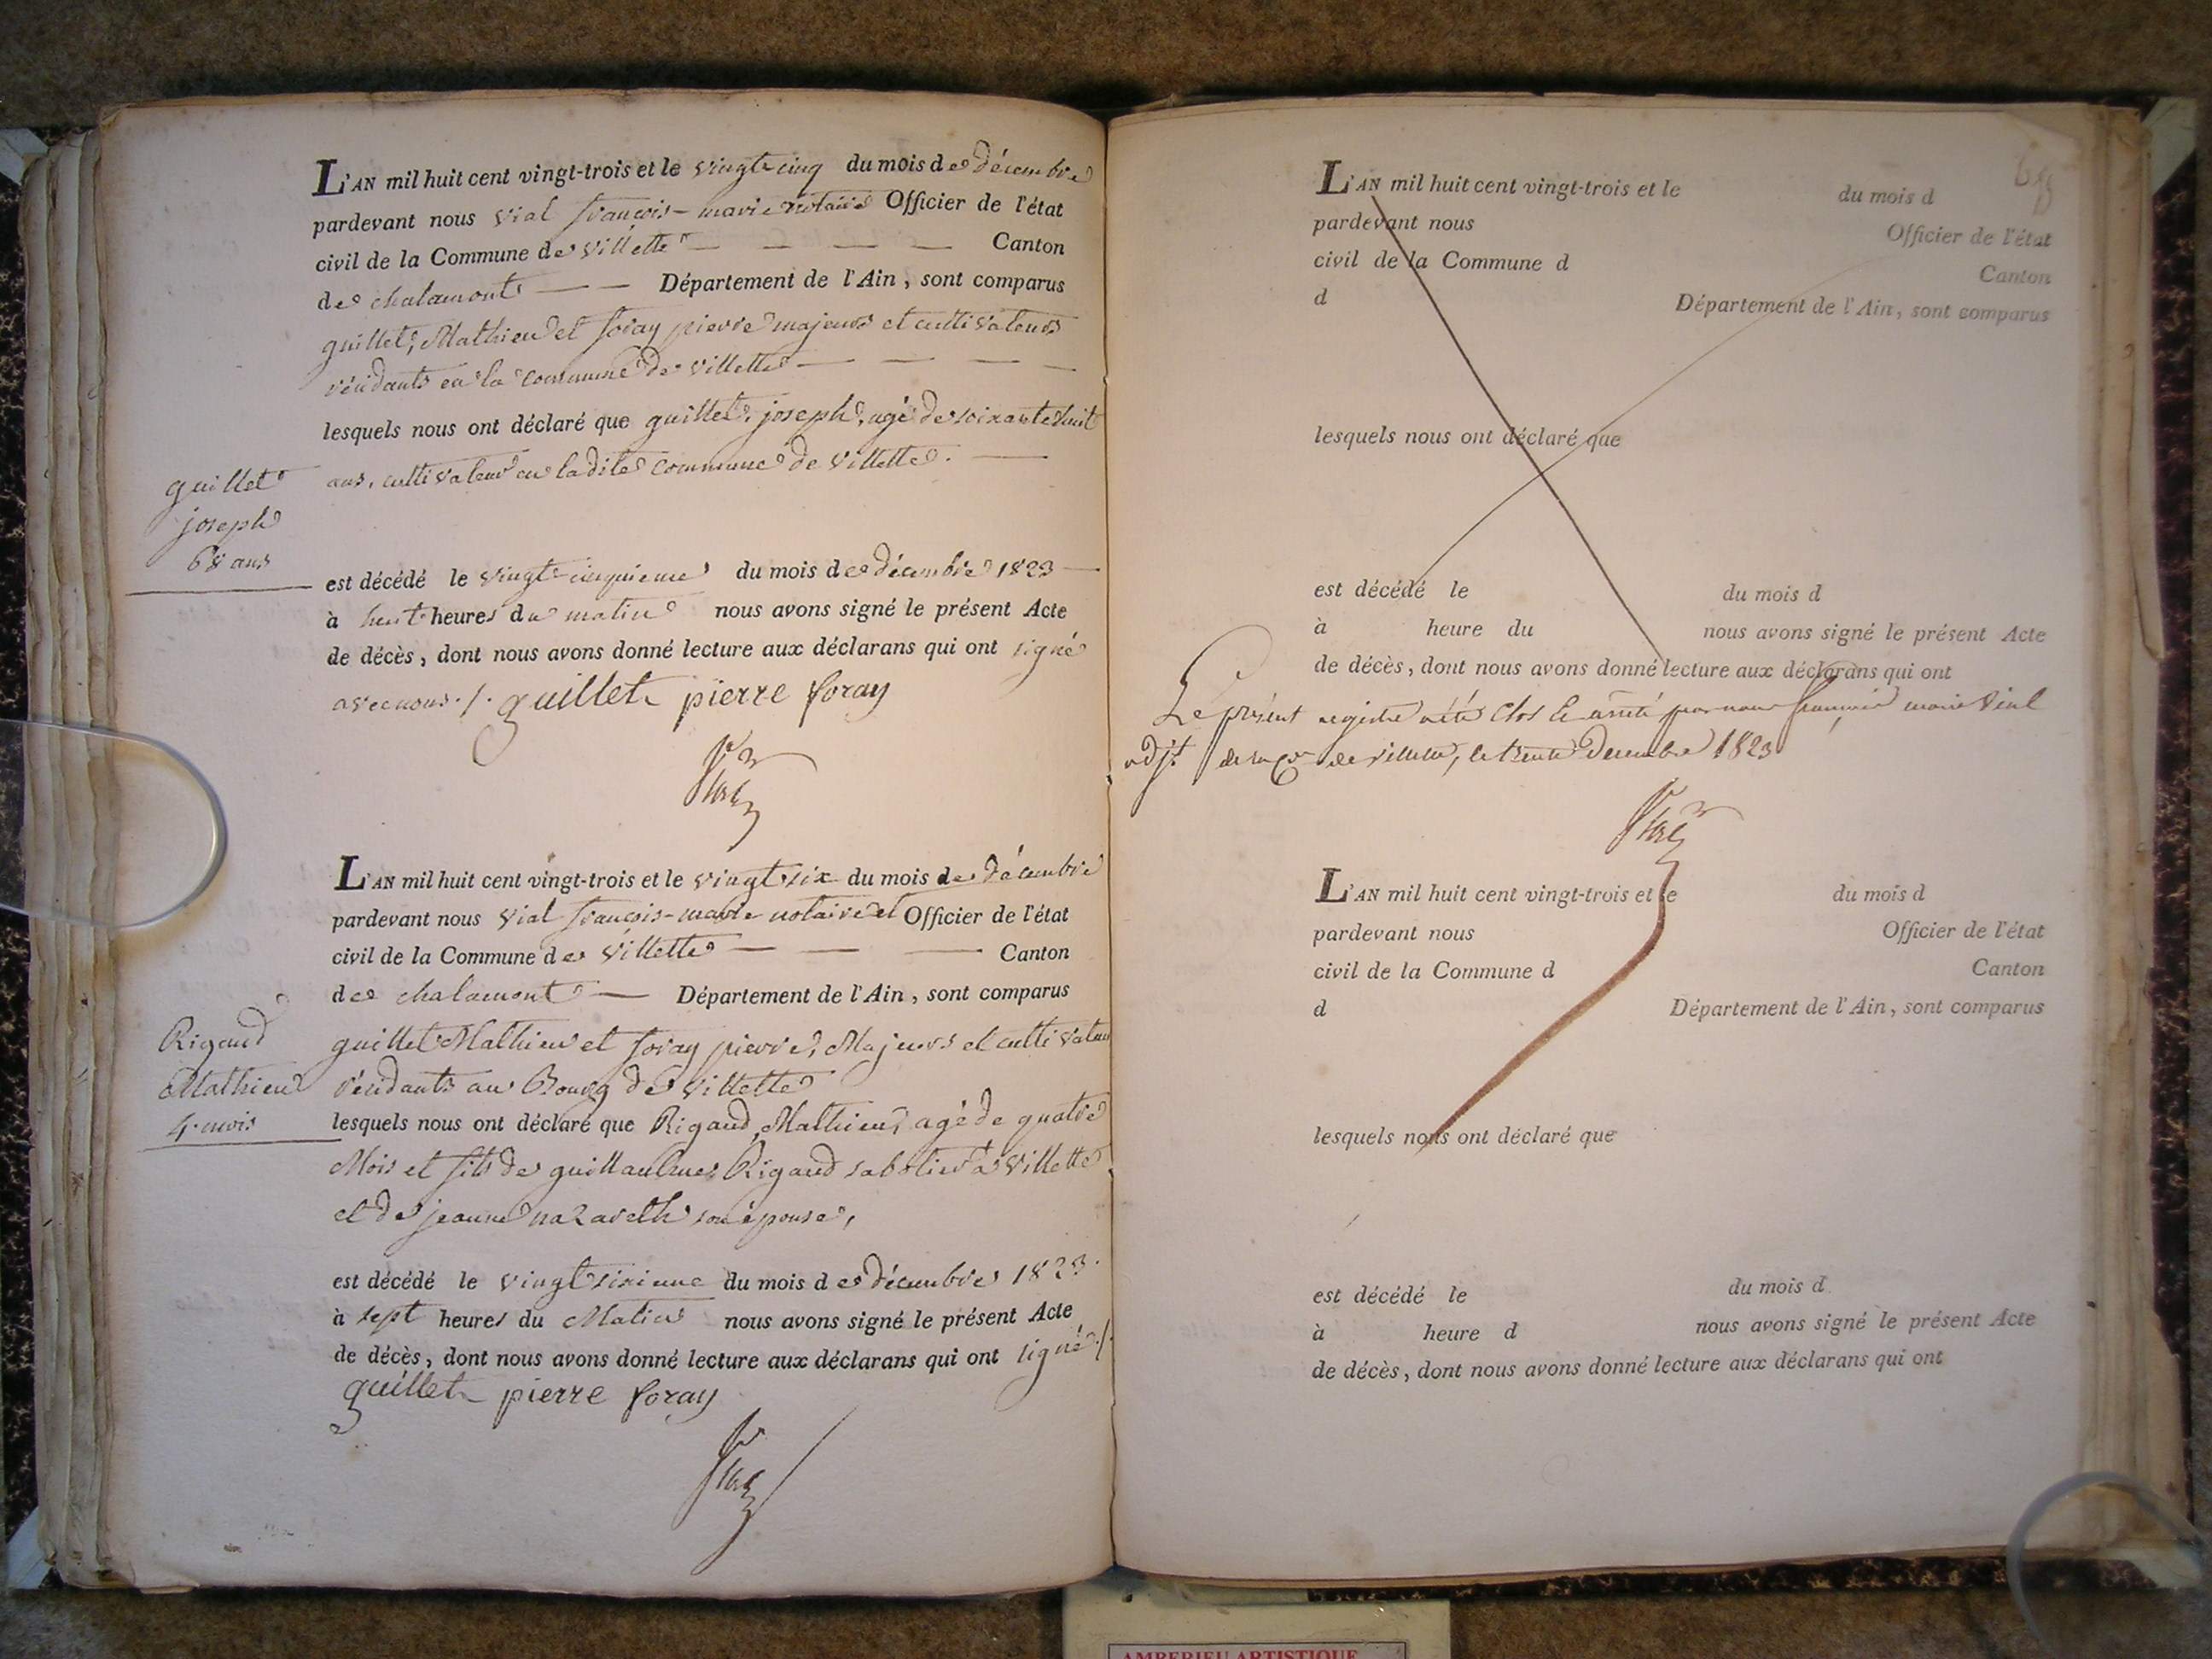 L'AN mil huit cent vingt-trois et le vingt cinq du mois de décembre
pardevant nous vial françois-marie notaire Officier de l'état
civil de la Commune de villette — — — — Canton
de chalamont — — Département de l'Ain, sont comparus
guillet, Mathieu et foray pierre majeurs et cultivateurs
résidants en la commune de villette — — — —
lesquels nous ont déclaré que guillet, joseph, agé de soixante huit
ans, cultivateur en la dite commune de villette. —
guillet
joseph
68 ans
est décédé le vingt-cinquieme du mois de décembre 1823 —
à huit heures du matin nous avons signé le présent Acte
de décès, dont nous avons donné lecture aux déclarans qui ont signé
avec nous ./. guillet pierre foray
Vial
L'AN mil huit cent vingt-trois et le vingt six du mois de décembre
pardevant nous vial françois-marie notaire et Officier de l'état
civil de la Commune de villette — — — Canton
de chalamont — Département de l'Ain, sont comparus
guillet Mathieu et foray pierre, Majeurs et cultivateurs
résidants au Bourg de villette
Rigaud
Mathieu
4 mois
lesquels nous ont déclaré que Rigaud, Mathieu, agé de quatre
Mois et fils de guillaulme Rigaud sabotier à villette
et de jeanne nazareth son épouse,
est décédé le vingt sixieme du mois de décembre 1823.
à sept heures du Matin nous avons signé le présent Acte
de décès, dont nous avons donné lecture aux déclarans qui ont signé ./.
guillet pierre foray
Vial
L'AN mil huit cent vingt-trois et le du mois d
pardevant nous Officier de l'état
civil de la Commune d Canton
d Département de l'Ain, sont comparus
lesquels nous ont déclaré que
est décédé le du mois d
à heure du nous avons signé le présent Acte
de décès, dont nous avons donné lecture aux déclarans qui ont
Le présent registre a été clos & arrêté par nous françois marie Vial
adjt de villette, le trente décembre 1823
Vial
L'AN mil huit cent vingt-trois et le du mois d
pardevant nous Officier de l'état
civil de la Commune d Canton
d Département de l'Ain, sont comparus
lesquels nous ont déclaré que
est décédé le du mois d
à heure d nous avons signé le présent Acte
de décès, dont nous avons donné lecture aux déclarans qui ont
AMBERIEU ARTISTIQUE